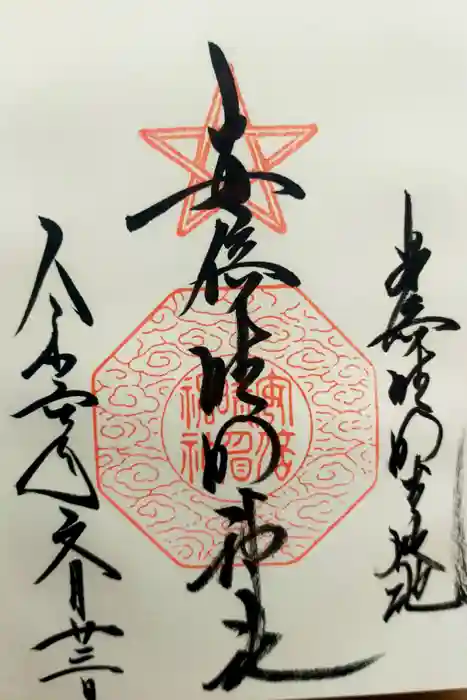 安倍晴明生誕地
安倍晴明神社
安倍
晴明
神社
令和年六月廿三日